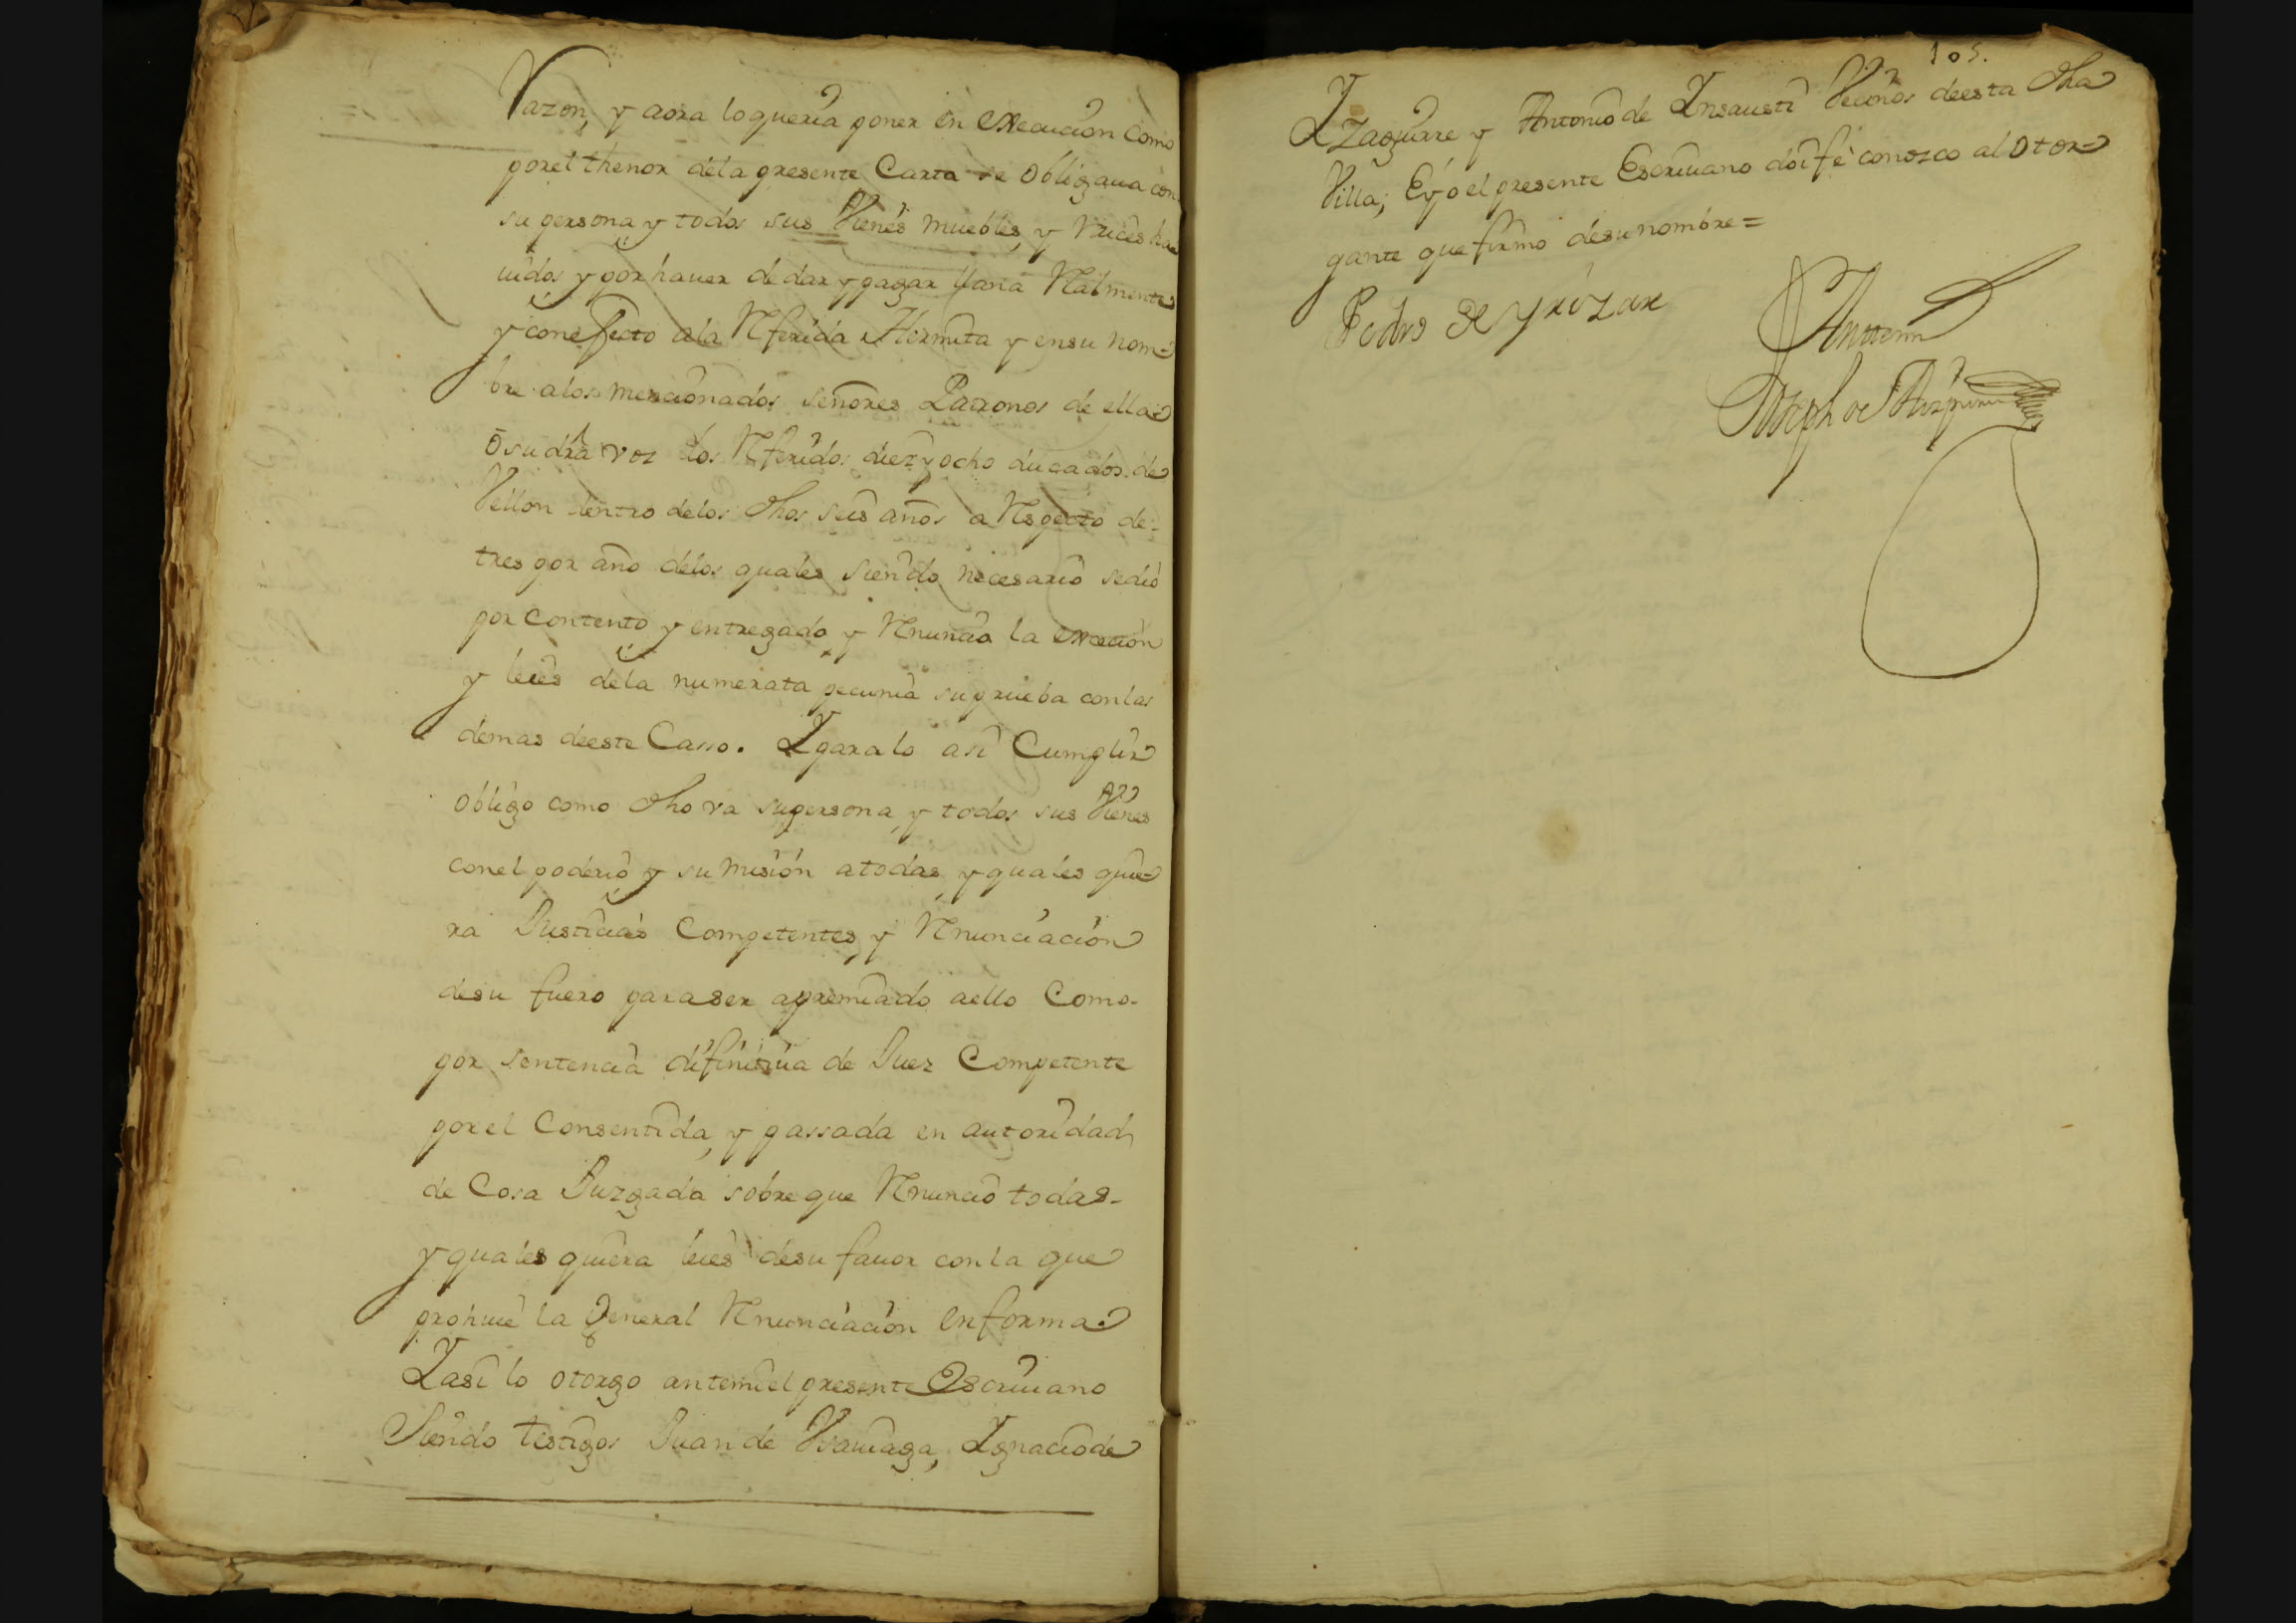 razon, y aora lo queria poner en execucion como
por el thenor de la presente Carta se obligaua con
su persona y todos sus Vienes muebles, y raices ha
uidos y por hauer de dar y pagar llana realmente
y con efecto a la referida Hermita y en su nom=
bre a los mencionados señores Patronos de ella
o su dra voz los referidos diez y ocho ducados de
Vellon dentro de los dhos seis años a respecto de-
tres por año de los quales siendo necesario se dio
por contento y entregado y renuncio la excecion
y leies de la numerata pecunia su prueba con las
demas de este Casso. Y para lo asi Cumplir
obligo como dho va su persona, y todos sus Vienes
con el poderio y sumision a todas, y quales quie=
ra Justicias Competentes, y renunciacion
de su fuero para ser apremiado a ello Como-
por sentencia difinitiua de Juez Competente
por el Consentida, y passada en autoridad
de Cosa Juzgada sobre que renuncio todas-
y quales quiera leies de su fauor con la que
prohiue la General renunciacion en forma.
Y asi lo otorgo ante mi el presente Escriuano
Siendo testigos Juan de Vsauiaga, Ygnacio de
105.
Yzaguirre y Antonio de Ynsausti Vecinos de esta dha
Villa; E yo el presente Escriuano doi fe conozco al otor=
gante que firmo de su nombre=
Pedro de yrizar
Ante mi
Joseph de Aizpuru